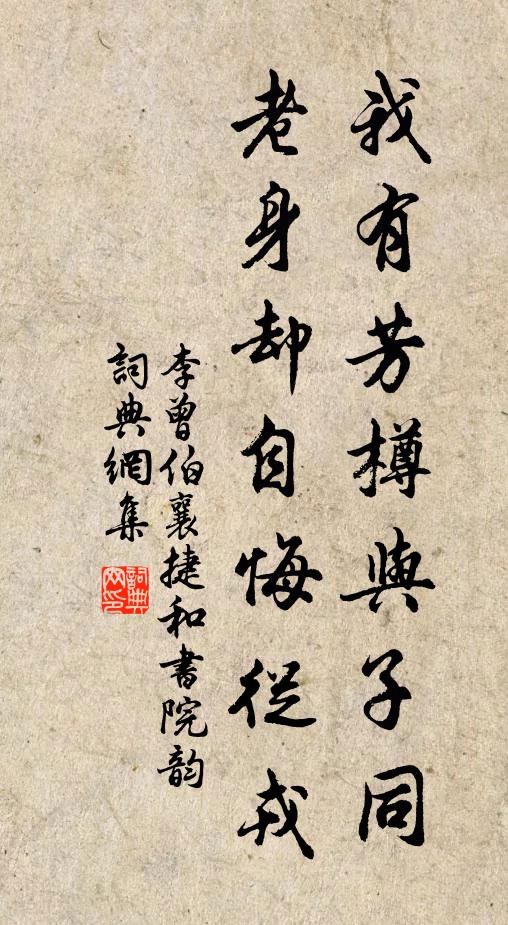 我有芳樽與子同
老身却自悔從戎
李曾伯襄捷和書院韵
詞典網集
詞典網印